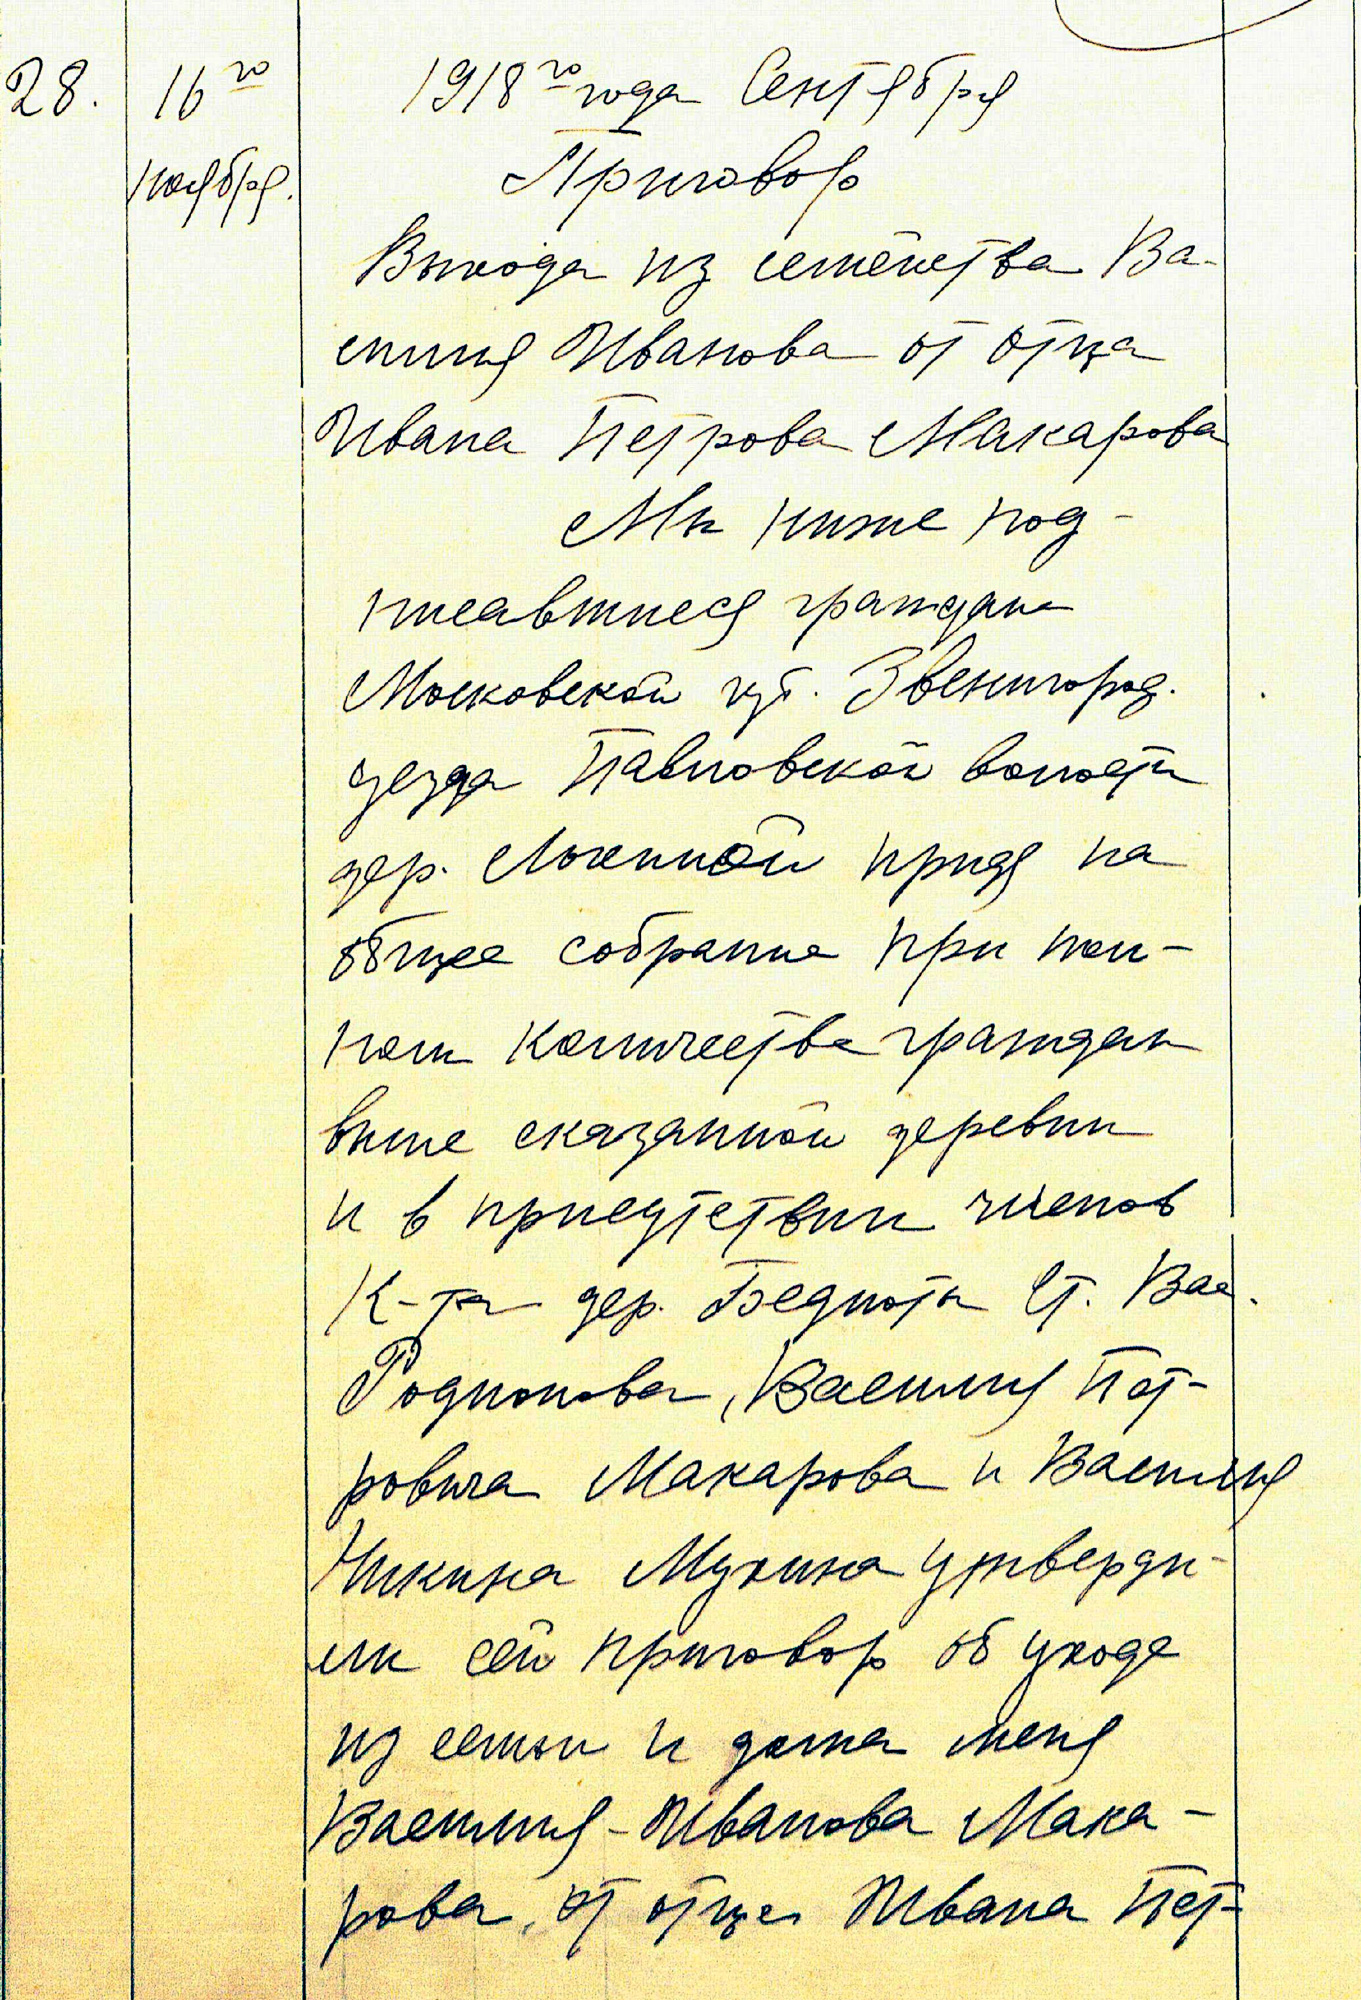 28. 16го 1918го года Сентября
ноября. Приговор
Выхода из семейства Ва-
силия Иванова от отца
Ивана Петрова Макарова
Мы ниже под-
писавшиеся граждане
Московской губ. Звенигород.
уезда Павловской волости
дер. Лохиной придя на
общее собрание при пол-
ном количестве граждан
выше сказанной деревни
и в присутствии членов
К-та дер. Бедноты Ст. Вас.
Родионова, Василия Пет-
ровича Макарова и Василия
Никина Мухина утверди-
ли сей приговор об уходе
из семьи и дома меня
Василия-Иванова Мака-
рова, от отца Ивана Пет-